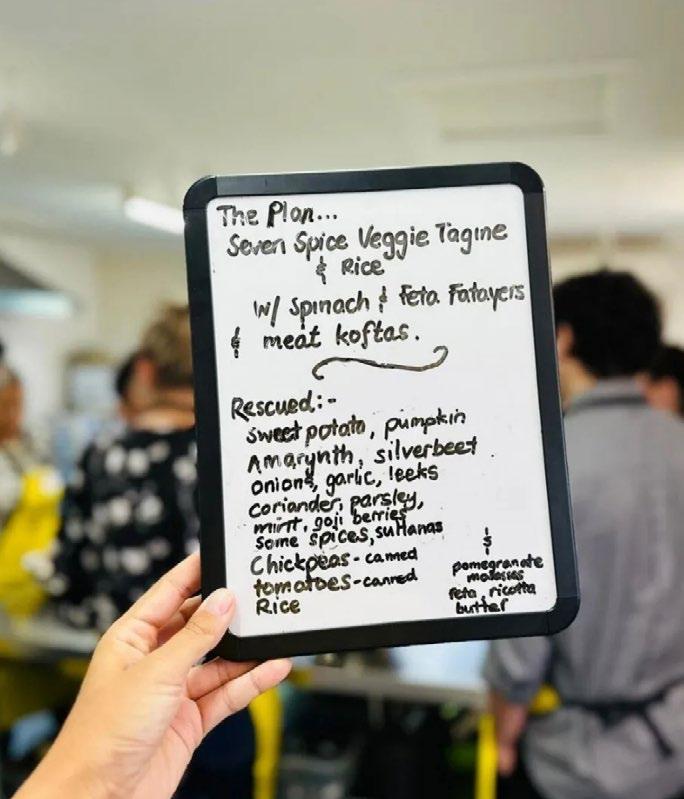 The Plan...
Seven Spice Veggie Tagine
& Rice
w/ Spinach & Feta Fatayers
& meat koftas.
Rescued:-
sweet potato, pumpkin
Amarynth, silverbeet
onions, garlic, leeks
coriander, parsley,
mint, goji berries
some spices, sultanas
Chickpeas - canned
tomatoes - canned
Rice
&
pomegranate
molasses
feta ricotta
butter